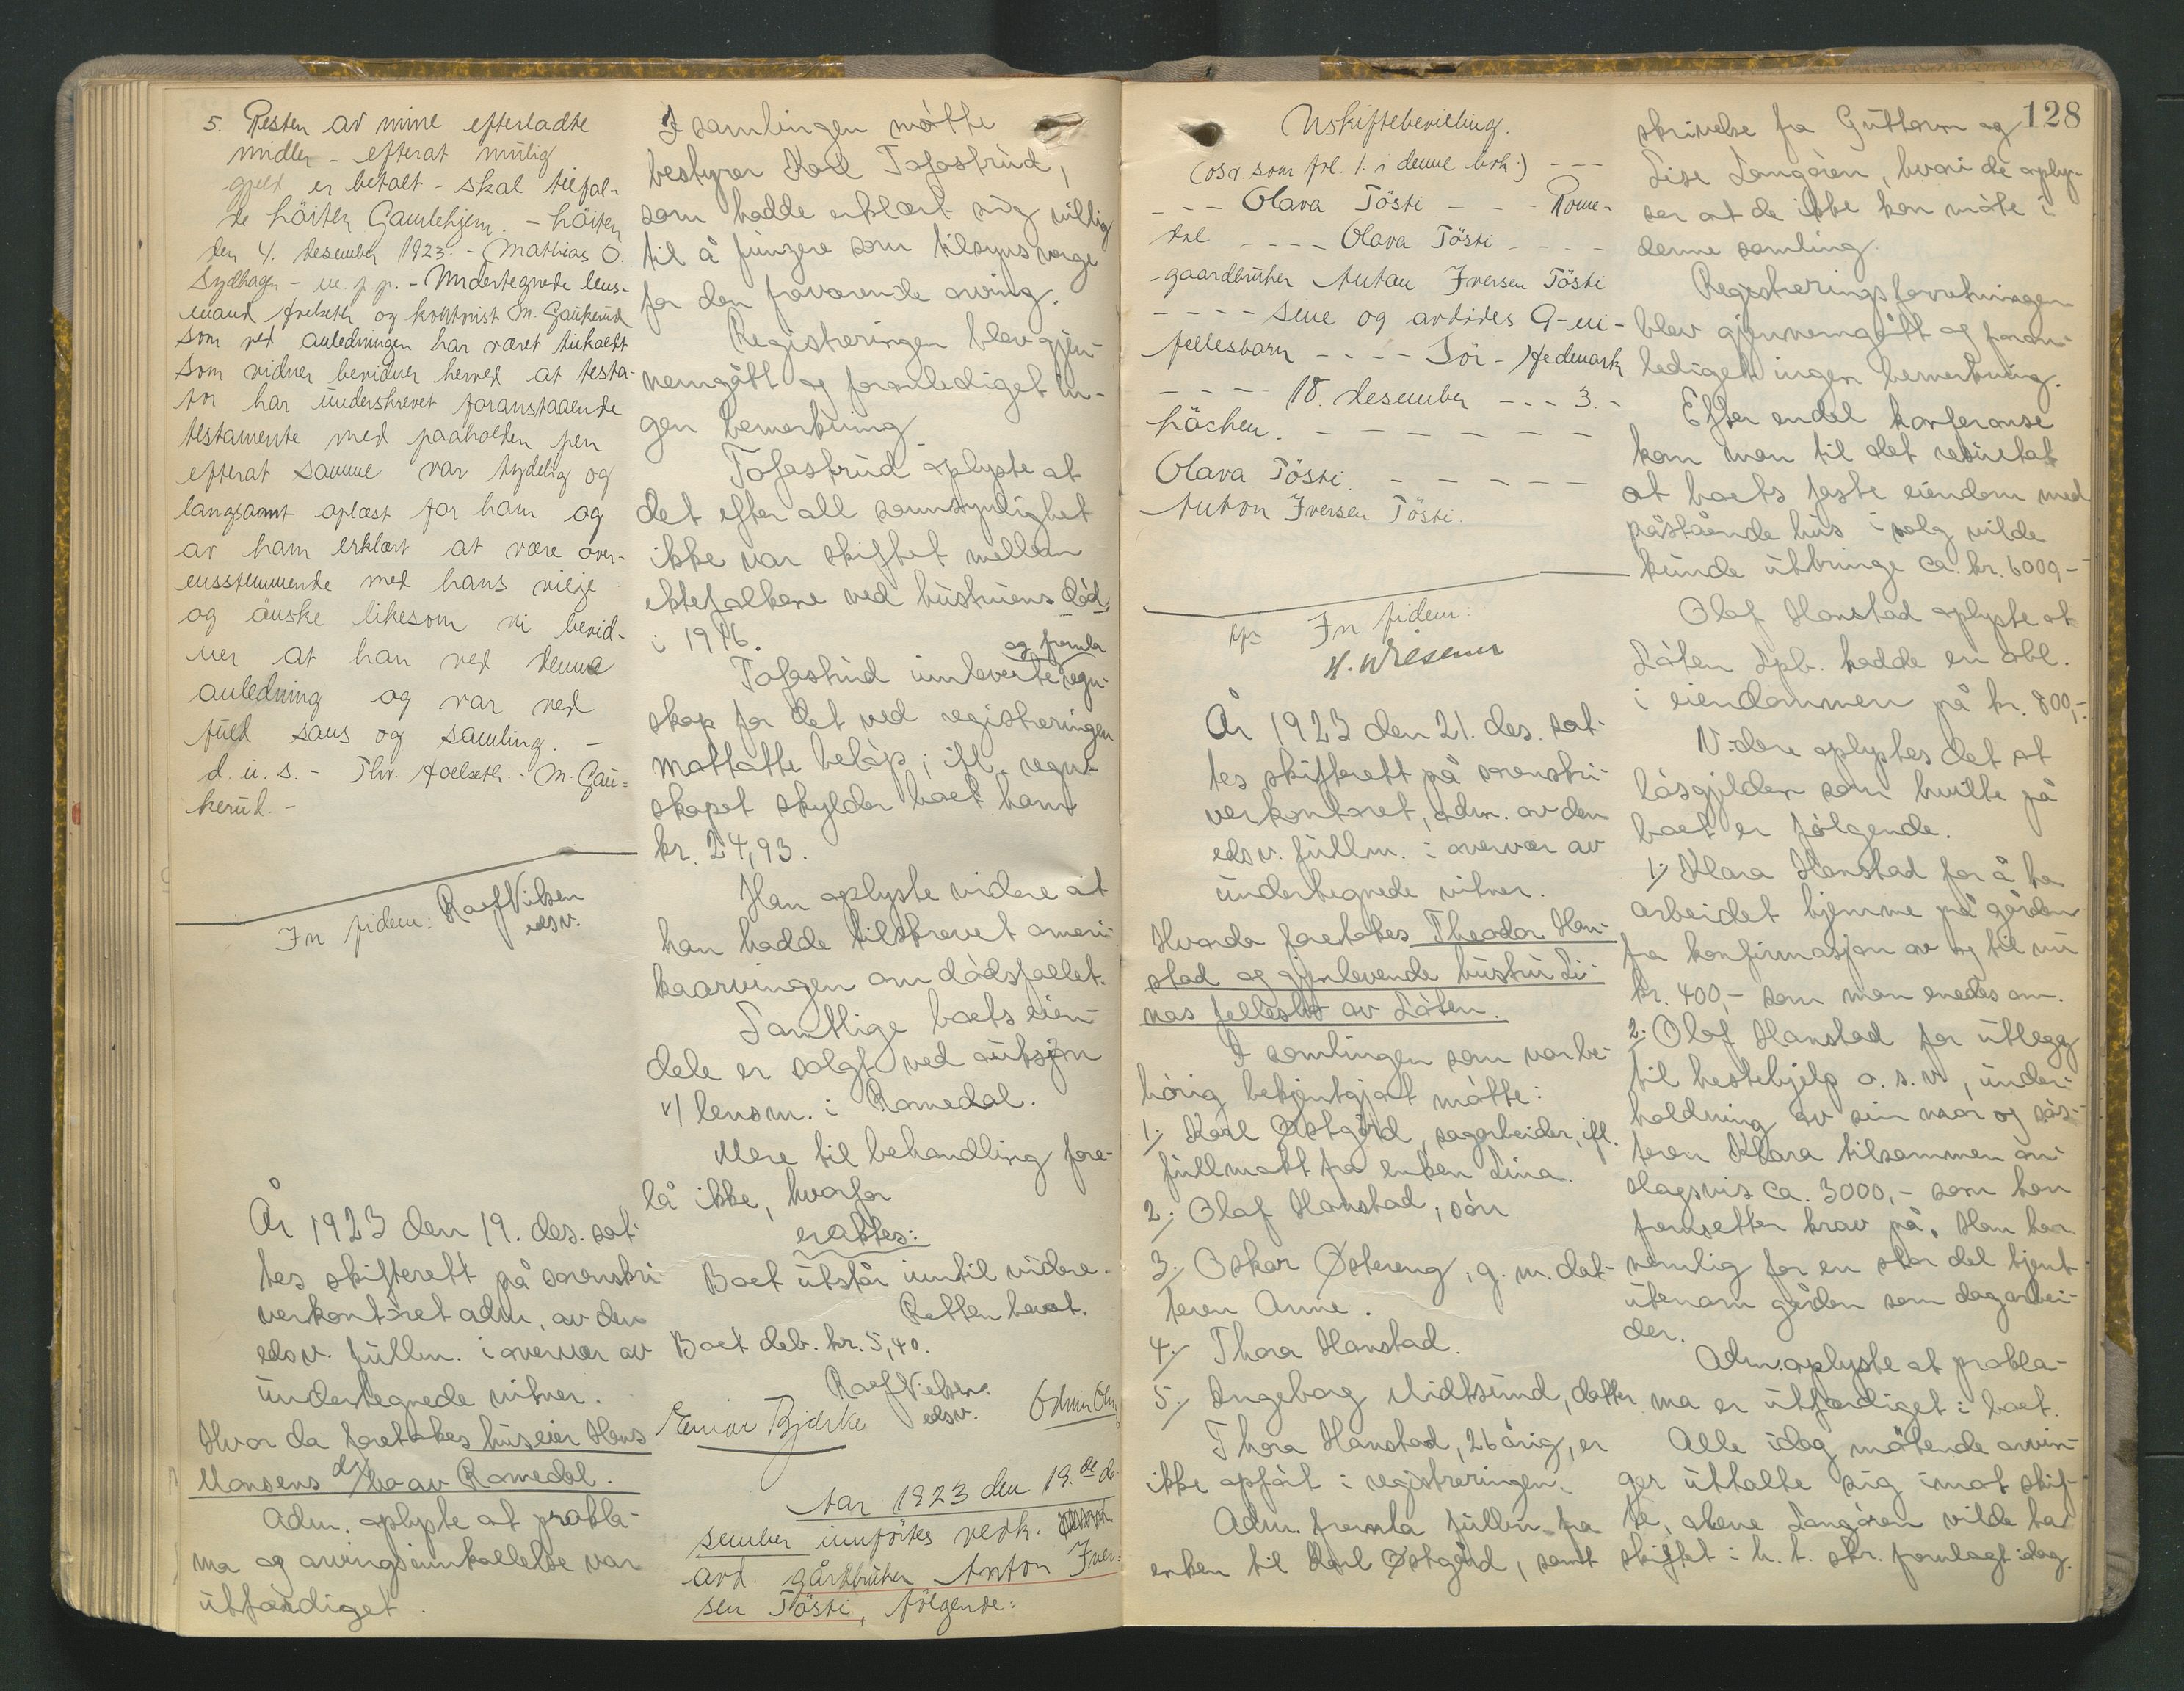 5. Resten av mine efterladte
midler - efterat mulig
gjeld er betalt - skal tilfal-
de Löiten Gamlehjem. - Löiten
den 4. desember 1923. - Mathias O.
Sydhagen - m. p. p. - Undertegnede lens-
mand Hoelseth og kontorist M. Gaukerud
som ved anledningen har været tilkaldt
som vidner bevidner herved at testa-
tor har underskrevet foranstaaende
testamente med paaholden pen
efterat samme var tydelig og
langsomt oplæst for ham og
av ham erklært at være over-
ensstemmende med hans vilje
og önske likesom vi bevid-
ner at han ved denne
anledning og var ved
fuld sans og samling. -
d. u. s. - Thv. Hoelseth. - M. Gau-
kerud. -
In fidem: Roef Nilsen
edsv.
År 1923 den 19. des. sat-
tes skifterett på sorenskri-
verkontoret adm. av den
edsv. fullm. i overvær av
undertegnede vitner.
Hvor da foretokes huseier Hans
Monsens d/bo av Romedal.
Adm. oplyste at prokla-
ma og arvingsinnkallelse var
utfærdiget.
I samlingen møtte
bestyrer Karl Tofastrud,
som hadde erklært sig villig
til å fungere som tilsynsverge
for den fraværende arving.
Registreringen blev gjen-
nemgått og foranlediget in-
gen bemerkning.
Tofastrud oplyste at
det efter all sannsynlighet
ikke var skiftet mellem
ektefolkene ved hustruens død
i 1916.
og fremla
Tofastrud innleverte regn-
skap for det ved registreringen
mottatte beløp; ifl. regn-
skapet skylder boet ham
kr. 24,93.
Han oplyste videre at
han hadde tilskrevet ameri-
kaarvingen om dødsfallet.
Samtlige boets eien-
dele er solgt ved auksjon
v/ lensm. i Romedal.
Mere til behandling fore-
lå ikke, hvorfor
eraktes:
Boet utstår inntil videre.
Retten hevet.
Boet deb. kr. 5,40.
Roef Nilsen
edsv.
Einar Bjørke
Aar 1923 den 19. de de-
sember innförtes vedk.
avd. gårdbruker Anton Iver-
sen Tösti, følgende:
128
Uskiftebevilling.
(osv. som fol. 1. i denne bok.) - - -
- - - Olava Tösti - - - Rome-
dal - - - - Olava Tösti - - - -
- gaardbruker Anton Iversen Tösti
- - - - sine og avdødes G - m -
fellesbarn - - - - Sör - Hedmark
- - - - 18. desember - - - 3. -
Håchen. - - - - - - -
Olava Tösti. - - - - -
Anton Iversen Tösti.
In fidem:
H. Wiesener
År 1923 den 21. des. sat-
tes skifterett på sorenskri-
verkontoret, adm. av den
edsv. fullm. i overvær av
undertegnede vitner.
Hvorda foretokes Theodor Han-
stad og gjenlevende hustru Li-
nas fellesbo av Løten.
I samlingen som var be-
hørig bekjentgjort møtte:
1. Karl Østgård, sagarbeider, ifl.
fullmakt fra enken Lina.
2. Olaf Hanstad, sønn
3. Oskar Østereng, g. m. dat-
teren Anne.
4. Thora Hanstad.
5. Ingeborg Midtsund, datter
Thora Hanstad, 26 årig, er
ikke opført i registreringen.
Adm. fremla fullm. fra
enken til Karl Østgård, samt
skrivelse fra Guttorm og
Lise Langøren, hvori de oply-
ser at de ikke kan møte i
denne samling.
Registreringsforretningen
blev gjennemgått og foran-
lediget ingen bemerkning.
Efter endel konferanse
kom man til det resultat
at boets faste eiendom med
påstående hus i salg vilde
kunde utbringe ca. kr. 6000,-
Olaf Hanstad oplyste at
Løten Spb. hadde en obl.
i eiendommen på kr. 800,-
Videre oplystes det at
løsgjelden som hvilte på
boet er følgende.
1. Klara Hanstad for å ha
arbeidet hjemme på gården
fra konfirmasjon av og til nu
kr. 400,- som man enedes om.
2. Olaf Hanstad for utlegg
til hestehjelp o. s. v., under-
holdning av sin mor og søs-
teren Klara tilsammen an-
slagsvis ca. 3000,- som han
fremsetter krav på. Han har
nemlig for en stor del tjent
utenom gården som dagarbei-
der.
Adm. oplyste at prokla-
ma er utfærdiget i boet.
Alle idag møtende arvin-
ger uttalte sig imot skif-
te, alene Langøren vilde ha
skiftet i h. t. skr. fremlagt idag.